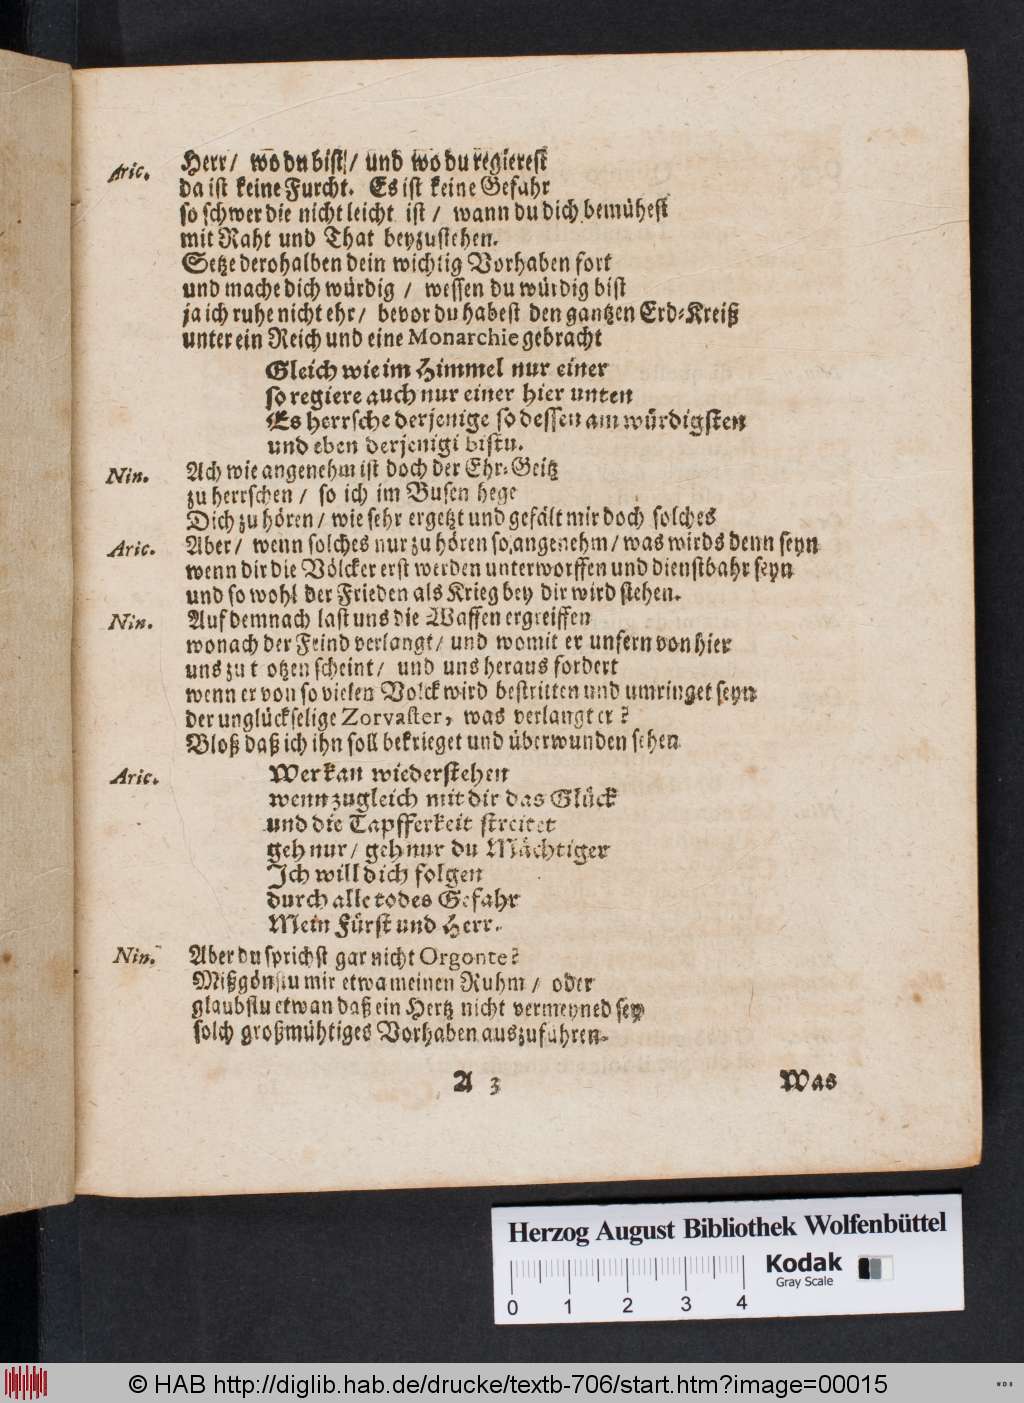 Aric. Herr / wo du bist / und wo du regierest
da ist keine Furcht. Es ist keine Gefahr
so schwer die nicht leicht ist / wann du dich bemühest
mit Raht und That beyzustehen.
Setze derohalben dein wichtig Vorhaben fort
und mache dich würdig / wessen du würdig bist
ja ich ruhe nicht ehr / bevor du habest den gantzen Erd-Kreiß
unter ein Reich und eine Monarchie gebracht
Gleich wie im Himmel nur einer
so regiere auch nur einer hier unten
Es herrsche derjenige so dessen am würdigsten
und eben derjenigi bistu.
Nin. Ach wie angenehm ist doch der Ehr-Geitz
zu herrschen / so ich im Busen hege
Dich zu hören / wie sehr ergetzt und gefält mir doch solches
Aric. Aber / wenn solches nur zu hören so angenehm / was wirds denn seyn
wenn dir die Völcker erst werden unterworffen und dienstbahr seyn
und so wohl der Frieden als Krieg bey dir wird stehen.
Nin. Auf demnach last uns die Waffen ergreiffen
wonach der Feind verlangt / und womit er unsern von hier
uns zu t otzen scheint / und uns heraus fordert
wenn er von so vielen Volck wird bestritten und umringet seyn
der unglückselige Zorvaster, was verlangt er ?
Bloß daß ich ihn soll bekrieget und überwunden sehen
Aric. Wer kan wiederstehen
wenn zugleich mit dir das Glück
und die Tapfferkeit streitet
geh nur / geh nur du Mächtiger
Ich will dich folgen
durch alle todes Gefahr
Mein Fürst und Herr.
Nin. Aber du sprichst gar nicht Orgonte ?
Mißgönstu mir etwa meinen Ruhm / oder
glaubstu etwan daß ein Hertz nicht vermeyned sey
solch großmühtiges Vorhaben auszuführen.
A 3 Was
Herzog August Bibliothek Wolfenbüttel
Kodak
Gray Scale
0 1 2 3 4
© HAB http://diglib.hab.de/drucke/textb-706/start.htm?image=00015